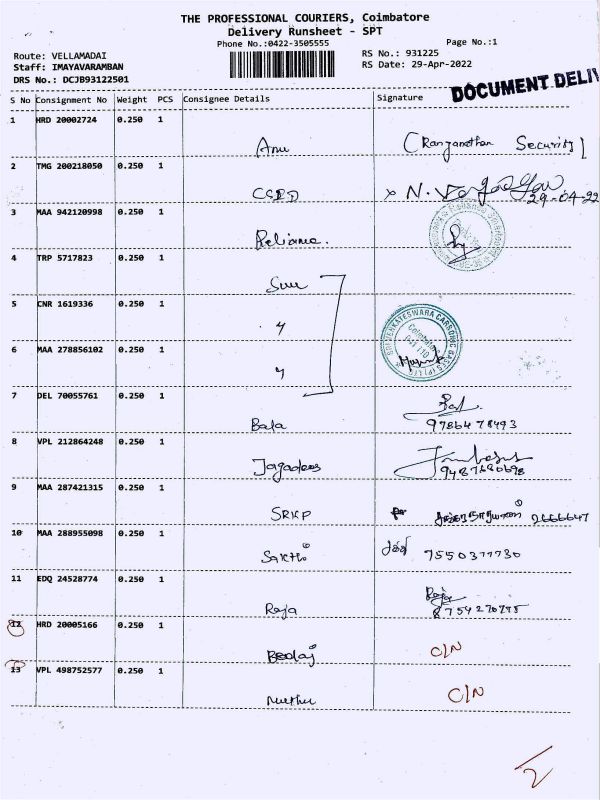 THE PROFESSIONAL COURIERS, Coimbatore
Delivery Runsheet - SPT
Phone No.:0422-3505555
Page No.:1
Route: VELLAMADAI
RS No.: 931225
Staff: IMAYAVARAMBAN
RS Date: 29-Apr-2022
DRS No.: DCJB93122501
DOCUMENT DELIV
S No Consignment No Weight PCS Consignee Details Signature
1 HRD 20002724 0.250 1
Anu (Ranganathan Security)
2 TMG 200218050 0.250 1
29-04-22
3 MAA 942120998 0.250 1
Reliance.
4 TRP 5717823 0.250 1
5 CNR 1619336 0.250 1
SRI VENKATESWARA CARBONIC GASES (P) LTD
Coimbatore
6 MAA 278856102 0.250 1
7 DEL 70055761 0.250 1
Bala
8 VPL 212864248 0.250 1
Jagadees
9 MAA 287421315 0.250 1
SRKP 2666647
10 MAA 288955098 0.250 1
Sakthi
11 EDQ 24528774 0.250 1
Raja Raja
12 HRD 20005166 0.250 1
C/N
13 VPL 498752577 0.250 1
Muthu C/N
2